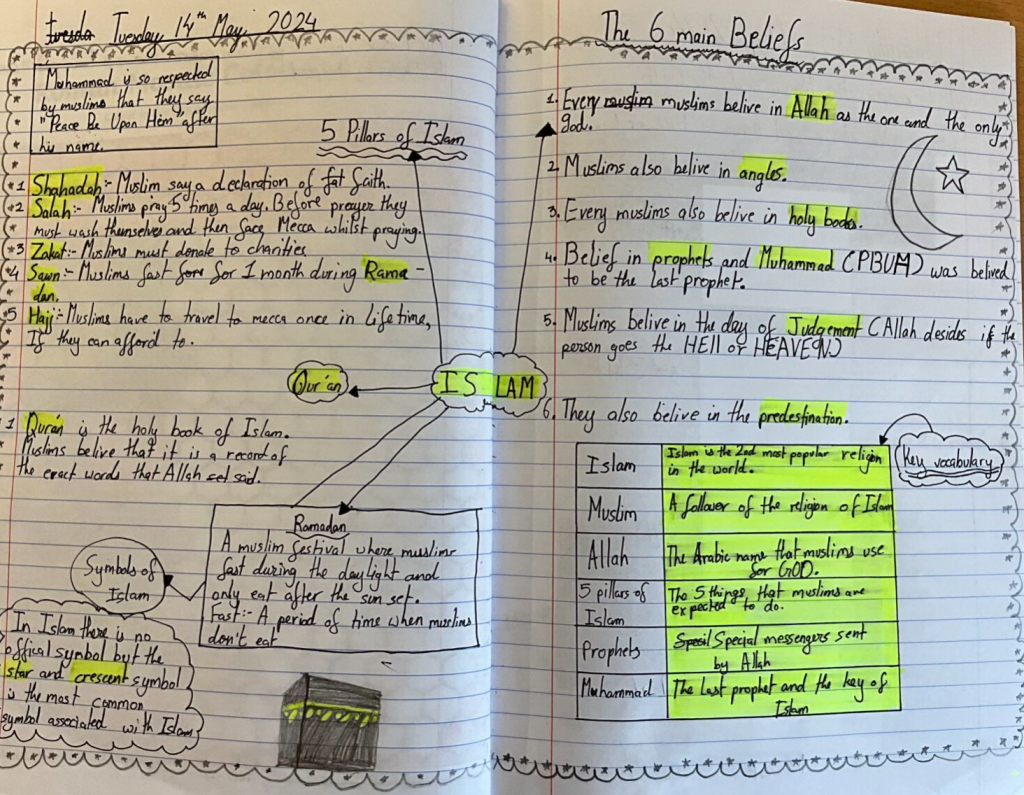 tuesda Tuesday 14th May, 2024
Muhammad is so respected
by muslims that they say
"Peace Be Upon Him" after
his name.
5 Pillars of Islam
1 Shahadah:- Muslim say a declaration of fat faith.
2 Salah:- Muslims pray 5 times a day. Before prayer they
must wash themselves and then face Mecca whilst praying.
3 Zakat:- Muslims must donate to charities
4 Sawn:- Muslims fast for for 1 month during Rama-
dan.
5 Hajj:- Muslims have to travel to mecca once in lifetime,
If they can afford to.
Qur'an
ISLAM
1 Qur'an is the holy book of Islam.
Muslims belive that it is a record of
the exact words that Allah said.
Ramadan
A muslim festival where muslims
fast during the daylight and
only eat after the sun set.
Fast:- A period of time when muslims
don't eat
Symbols of
Islam
In Islam there is no
offical symbol but the
star and crescent symbol
is the most common
symbol associated with Islam
The 6 main Beliefs
1. Every muslim muslims belive in Allah as the one and the only
god.
2. Muslims also belive in angles.
3. Every muslims also belive in holy books.
4. Belief in prophets and Muhammad (PBUM) was belived
to be the last prophet.
5. Muslims belive in the day of Judgement (Allah desides if the
person goes the HELL or HEAVEN)
6. They also belive in the predestination.
Key vocabulary
Islam Islam is the 2nd most popular religion
in the world.
Muslim A follower of the religion of Islam
Allah The Arabic name that muslims use
for GOD.
5 pillars of
Islam The 5 things, that muslims are
expected to do.
Prophets Specil Special messengers sent
by Allah
Muhammad The last prophet and the key of
Islam